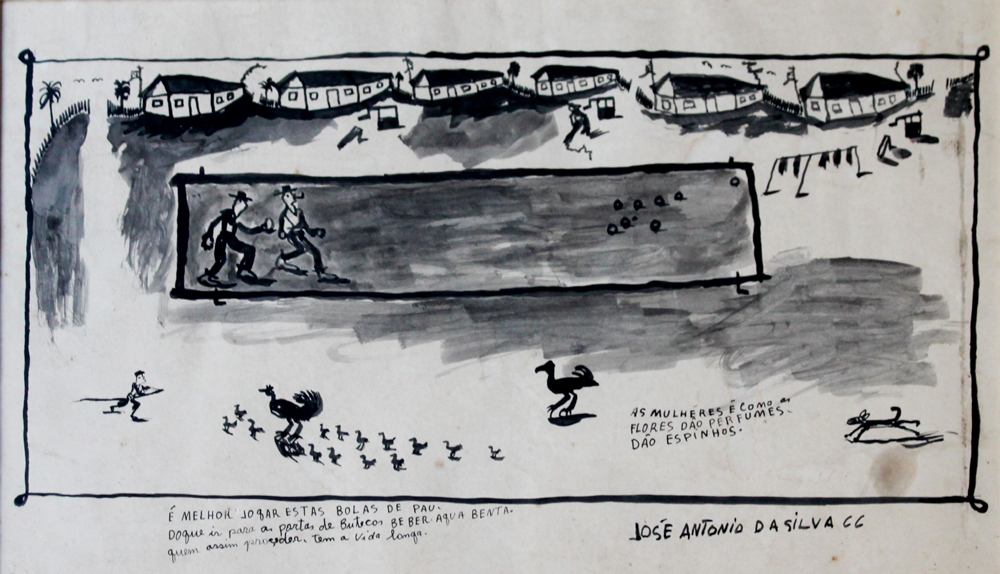 AS MULHERES É COMO as
FLORES DÃO PERFUMES.
DÃO ESPINHOS.
É MELHOR JOGAR ESTAS BOLAS DE PAU.
DOque ir para as portas de Butecos BEBER AQUA BENTA.
quem assim proceder. Tem a Vida longa.
JOSÉ ANTONIO DA SILVA 66